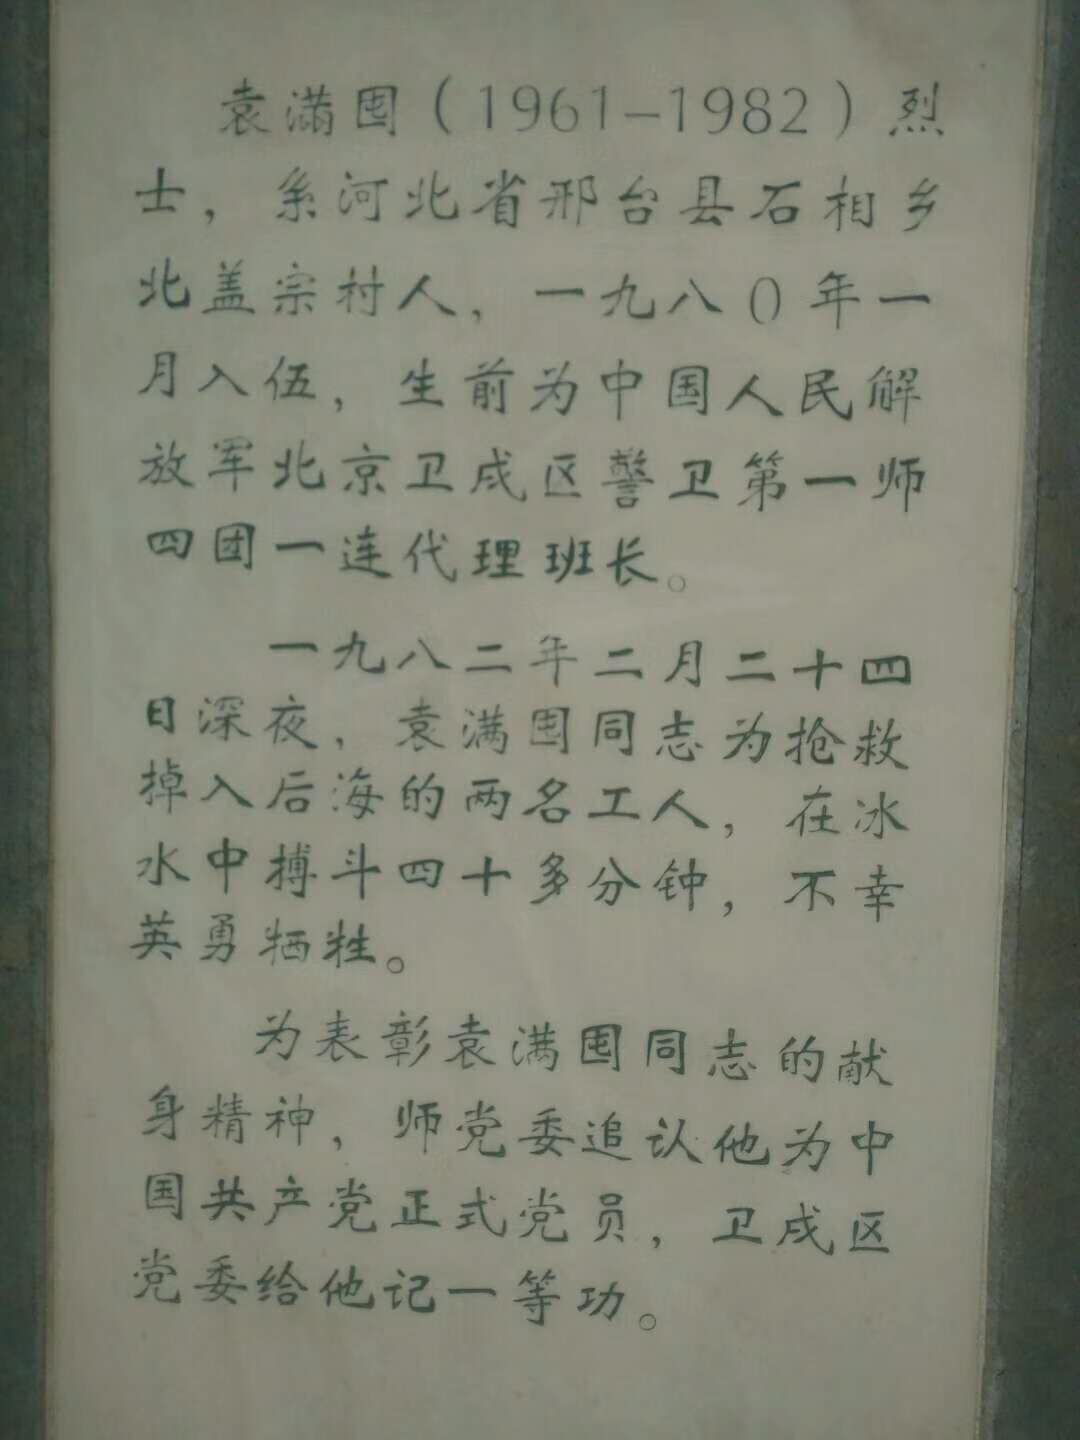 袁满囤（1961—1982）烈
士，系河北省邢台县石相乡
北盖宗村人，一九八〇年一
月入伍，生前为中国人民解
放军北京卫戍区警卫第一师
四团一连代理班长。
一九八二年二月二十四
日深夜，袁满囤同志为抢救
掉入后海的两名工人，在冰
水中搏斗四十多分钟，不幸
英勇牺牲。
为表彰袁满囤同志的献
身精神，师党委追认他为中
国共产党正式党员，卫戍区
党委给他记一等功。